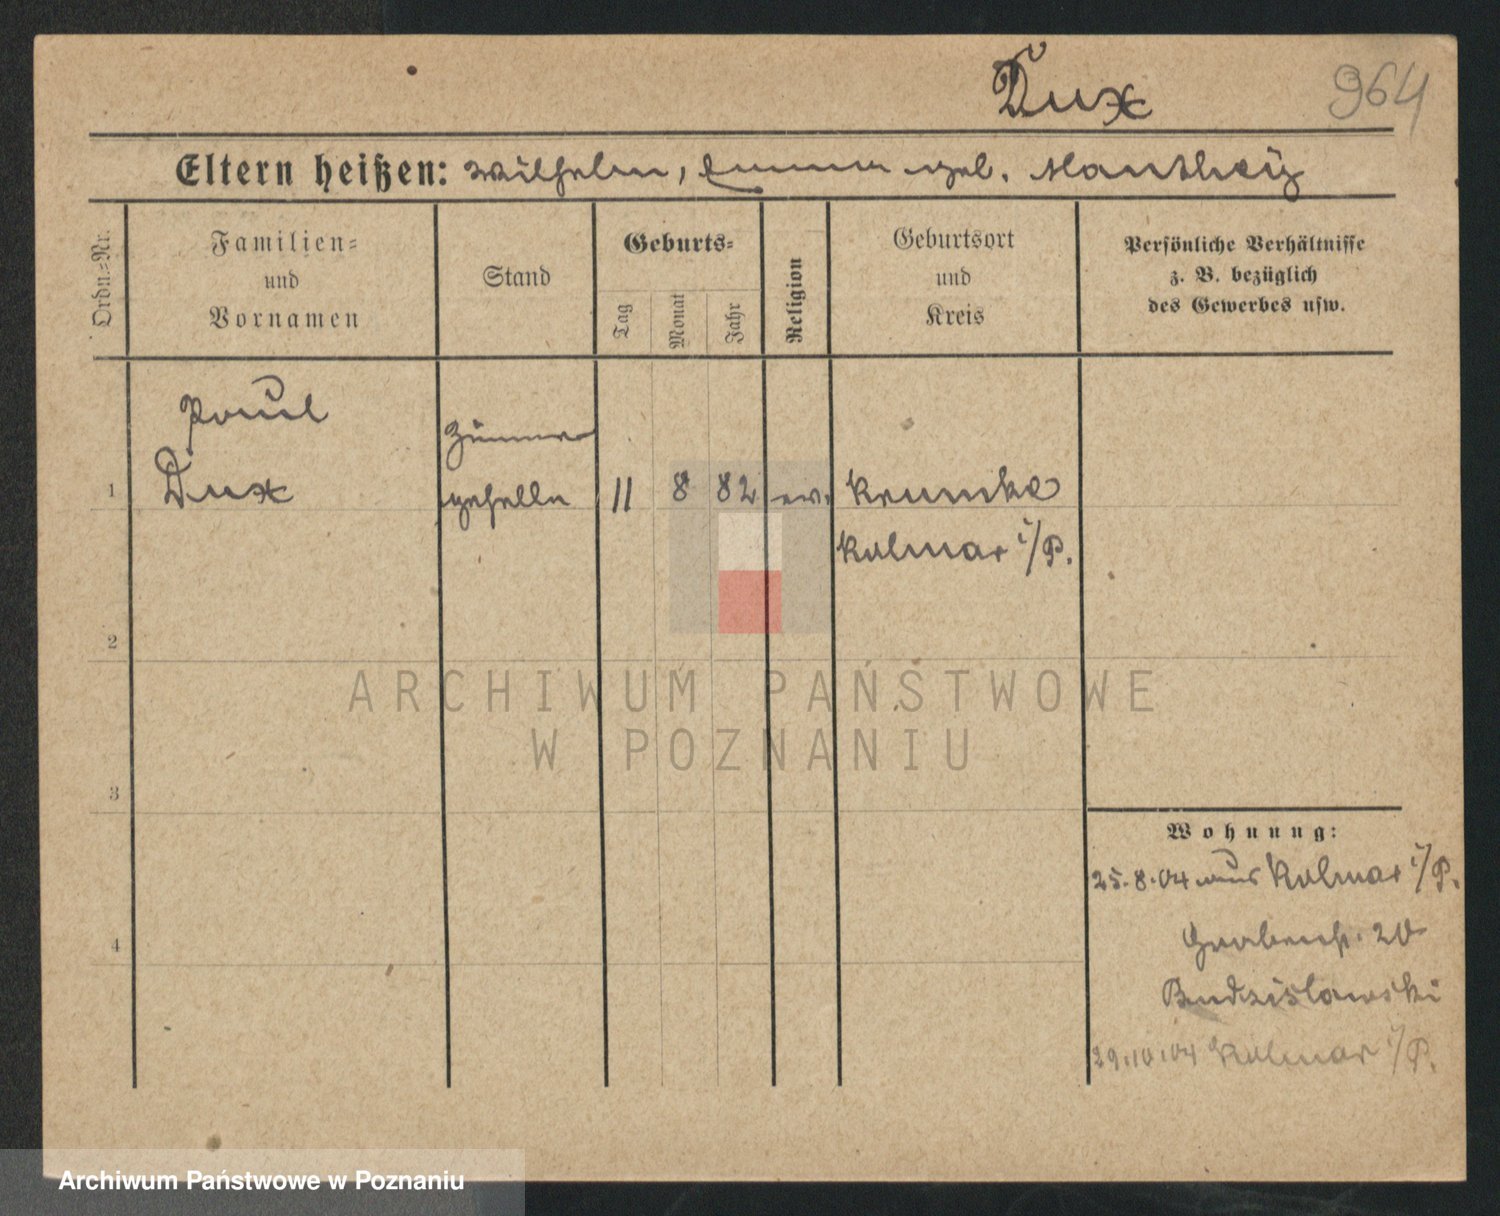 Dux
964
Eltern heißen: Wilhelm, Emma geb. Manthey
Ordn.=Nr.
Familien=
und
Vornamen
Stand
Geburts=
Tag
Monat
Jahr
Religion
Geburtsort
und
Kreis
Persönliche Verhältnisse
z. B. bezüglich
des Gewerbes usw.
Paul
Dux
Zimmer
geselle
1
11
8
82
ev.
Krumke
Kolmar i/P.
2
ARCHIWUM PAŃSTWOWE
W POZNANIU
3
Wohnung:
25.8.04 aus Kolmar i/P.
4
Grabenstr. 20
Budzislawski
29.10.04 Kolmar i/P.
Archiwum Państwowe w Poznaniu